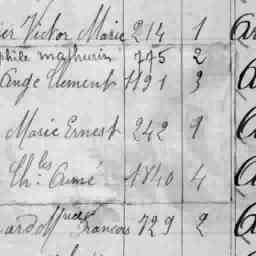 ier Victor Marie 214 1
phile mathurin 775 2
Ange Clement 1191 3
Marie Ernest 242 1
Ch.les Aimé 1840 4
François 729 2